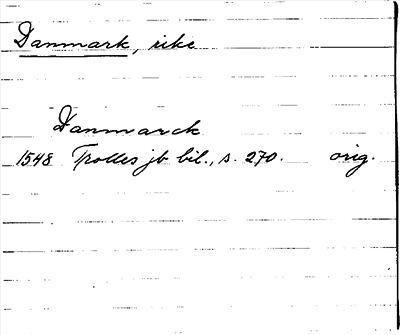 Danmark, rike
Danmarck
1548 Trolles jb bil., s. 270. orig.